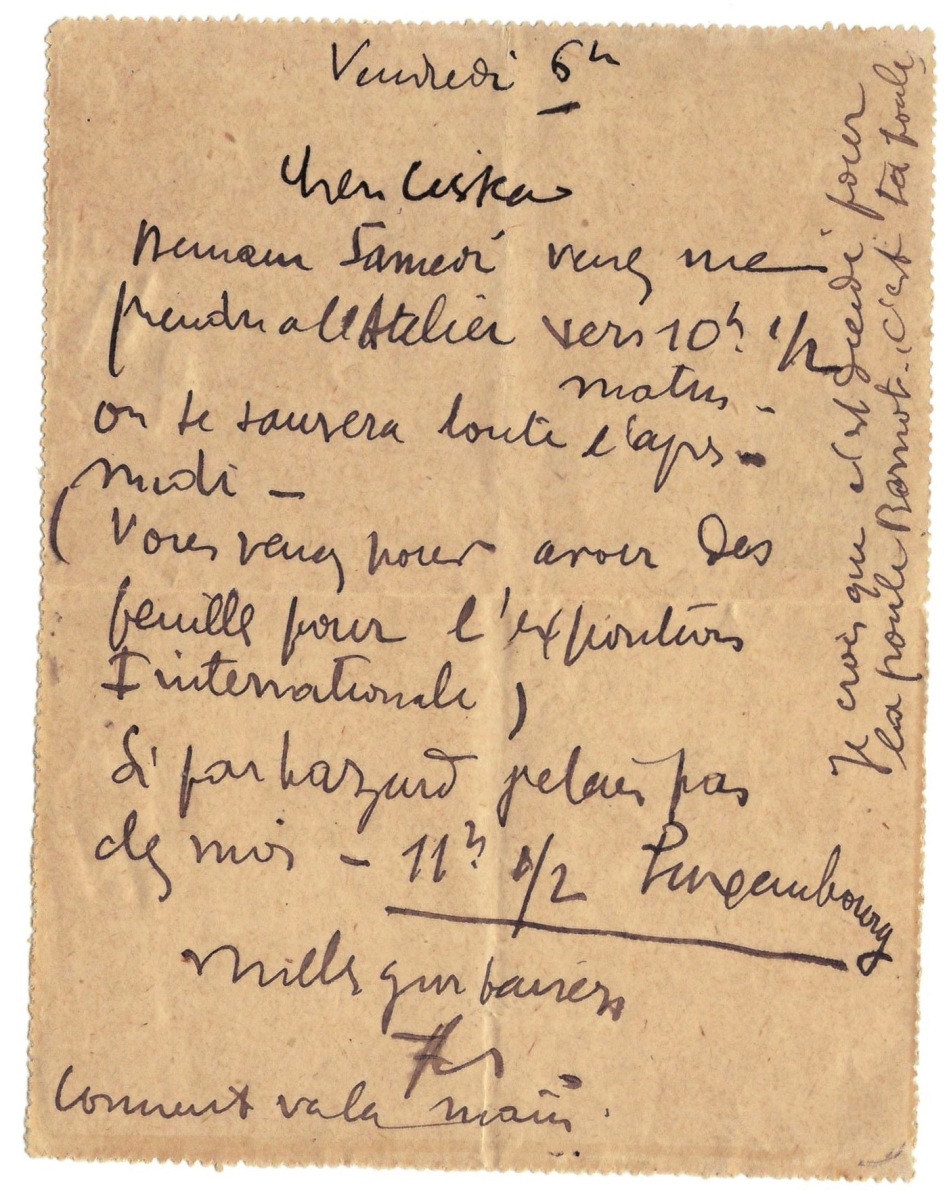 Vendredi 6h
Cher Ciska
Demain Samedi venez me
prendre a l'Atelier vers 10h 1/2
matin -
on se sauvera toute l'aprs -
midi -
( Vous venez pour avoir des
feuille pour l'exposition
Internationale )
Si par hazard j'etais pas
chez moi - 11h 1/2 Luxembourg
Mille gros baisers
Comment va la main
Je crois que c'est foier
la poule C'est ta poule